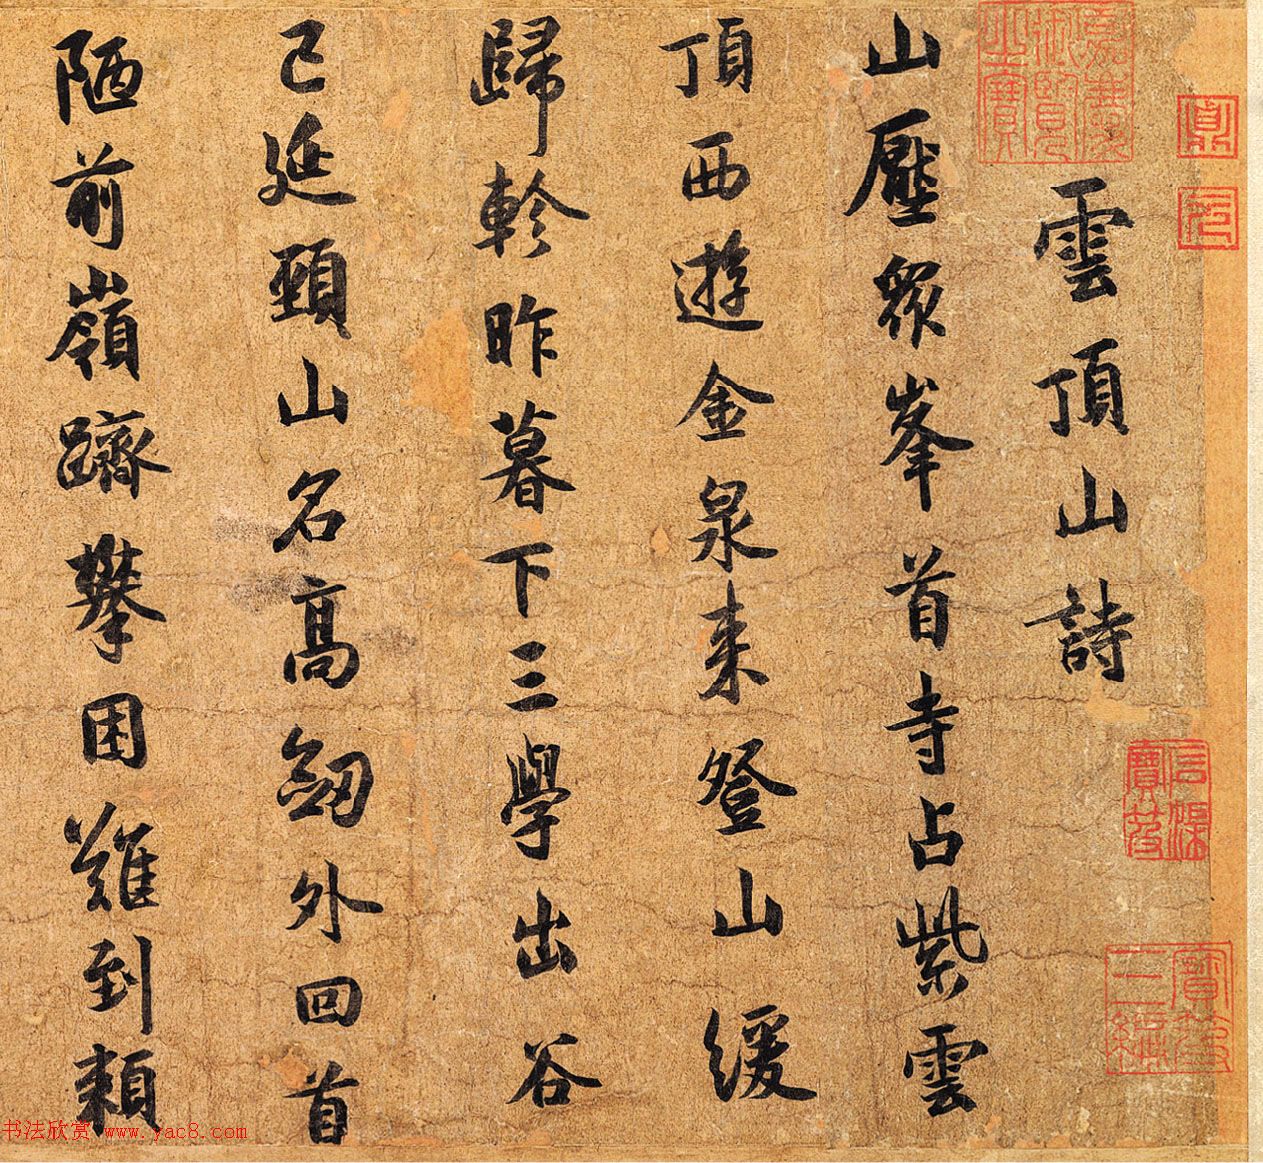 雲頂山詩
山壓衆峯首寺占紫雲
頂西遊金泉來登山緩
歸軫昨暮下三學出谷
已延頸山名高劒外回首
陋前嶺躋攀困難到頼
嘉慶御覽之寶
石渠寶笈
寶笈三編
书法欣赏 www.yac8.com